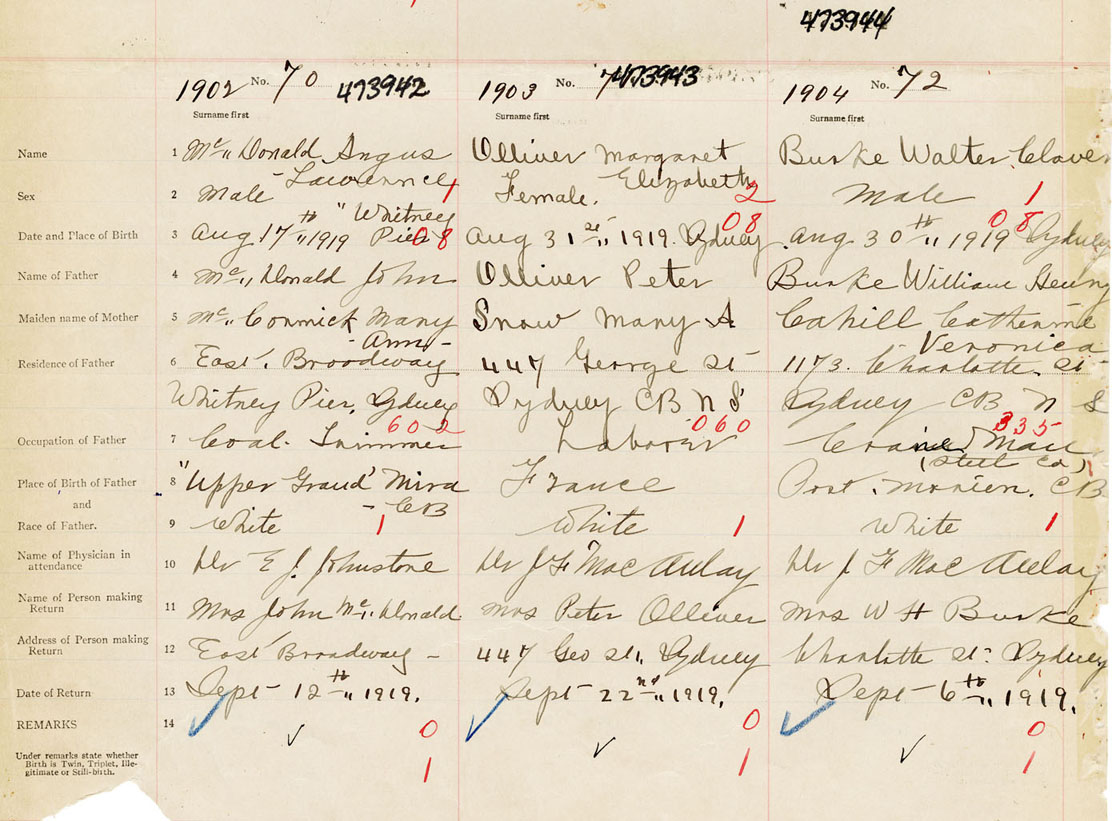 473944
1902 No. 70 473942 1903 No. 7 473943 1904 No. 72
Surname first Surname first Surname first
Name 1 Mc,, Donald Angus Olliver Margaret Burke Walter Claver
Lawrence Elizabeth
Sex 2 Male 1 Female. 2 Male 1
" Whitney 08 08
Date and Place of Birth 3 Aug 17th,, 1919 Pier 08 Aug 31st,, 1919. Sydney. Aug 30th,, 1919 Sydney
Name of Father 4 Mc,, Donald John Olliver Peter Burke William Henry
Maiden name of Mother 5 Mc,, Cormick Mary Snow Mary A Cahill Catherine
- Ann - Veronica
Residence of Father 6 East. Broadway 447 George St 1173. Charlotte. St
Whitney Pier, Sydney Sydney CB N S Sydney CB N S
602 060 335
Occupation of Father 7 Coal. Trimmer Laborer Crane Man
(Steel Co)
Place of Birth of Father 8 "Upper Grand" Mira France Port. Morien. CB
and - CB 1
Race of Father. 9 White 1 White 1 White 1
Name of Physician in
attendance 10 Dr E J. Johnstone Dr J F Mac Aulay Dr J. F Mac Aulay
Name of Person making
Return 11 Mrs John Mc,, Donald Mrs Peter Olliver Mrs W H Burke
Address of Person making
Return 12 East Broadway - 447 Geo St,, Sydney Charlotte St. Sydney
Date of Return 13 Sept 12th,, 1919. Sept 22nd,, 1919. Sept 6th,, 1919.
REMARKS 14 0 0 0
Under remarks state whether
Birth is Twin, Triplet, Ille-
gitimate or Still-birth. 1 1 1